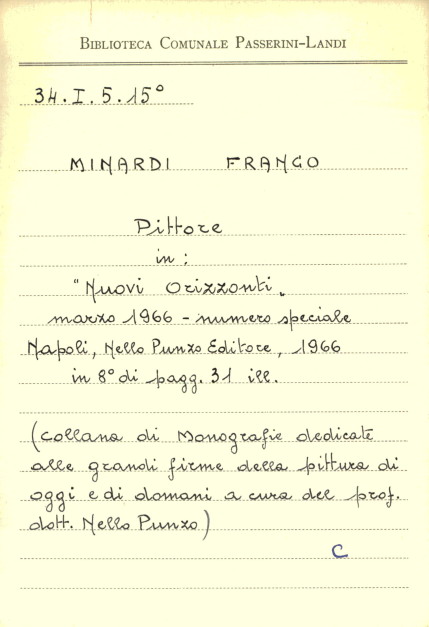 BIBLIOTECA COMUNALE PASSERINI-LANDI
34.I.5.15°
MINARDI FRANCO
Pittore
in:
"Nuovi Orizzonti"
marzo 1966 - numero speciale
Napoli, Nello Punzo Editore, 1966
in 8° di pagg. 31 ill.
(collana di Monografie dedicate
alle grandi firme della pittura di
oggi e di domani a cura del prof.
dott. Nello Punzo)
C